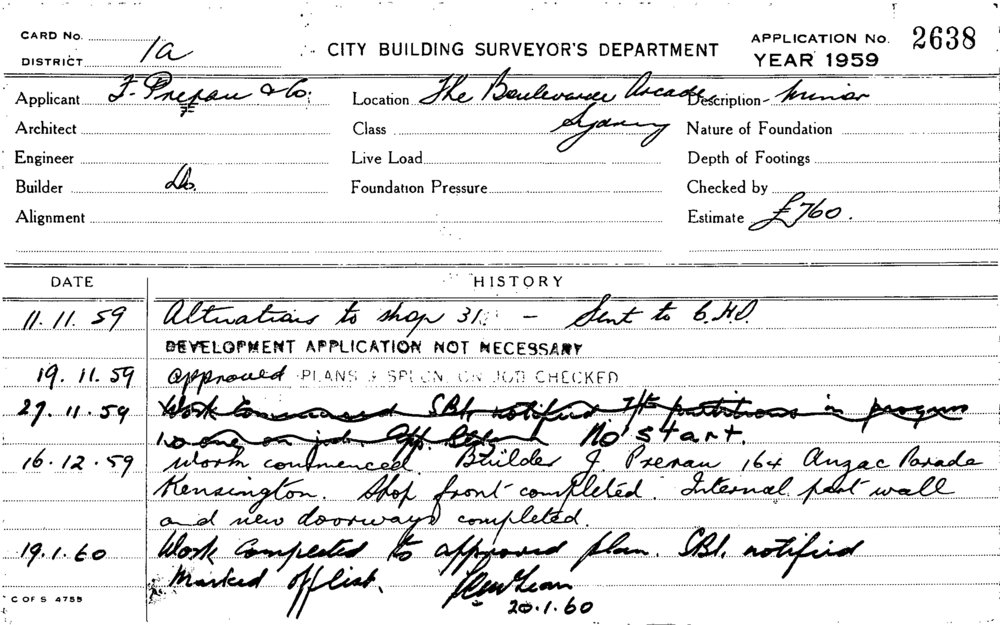 CARD No.
DISTRICT 1a
CITY BUILDING SURVEYOR'S DEPARTMENT
APPLICATION No. 2638
YEAR 1959
Applicant J. Prerau & Co.
Location The Boulevarde Arcade Sydney
Description minor
Architect
Class
Nature of Foundation
Engineer
Live Load
Depth of Footings
Builder Do.
Foundation Pressure
Checked by
Alignment
Estimate £760.
DATE HISTORY
11.11.59 Alterations to shop 31. - Sent to C.H.D.
DEVELOPMENT APPLICATION NOT NECESSARY
19.11.59 approved PLANS & SPECN. ON JOB CHECKED
27.11.59 Work commenced SBI. notified partitions in progress
no one on job. App. No start.
16.12.59 Work commenced. Builder J. Prerau 164 Anzac Parade
Kensington. Shop front completed. Internal part wall
and new doorways completed.
19.1.60 Work Completed to approved plan. SBI. notified
Marked off list.
20.1.60
C OF S 4755